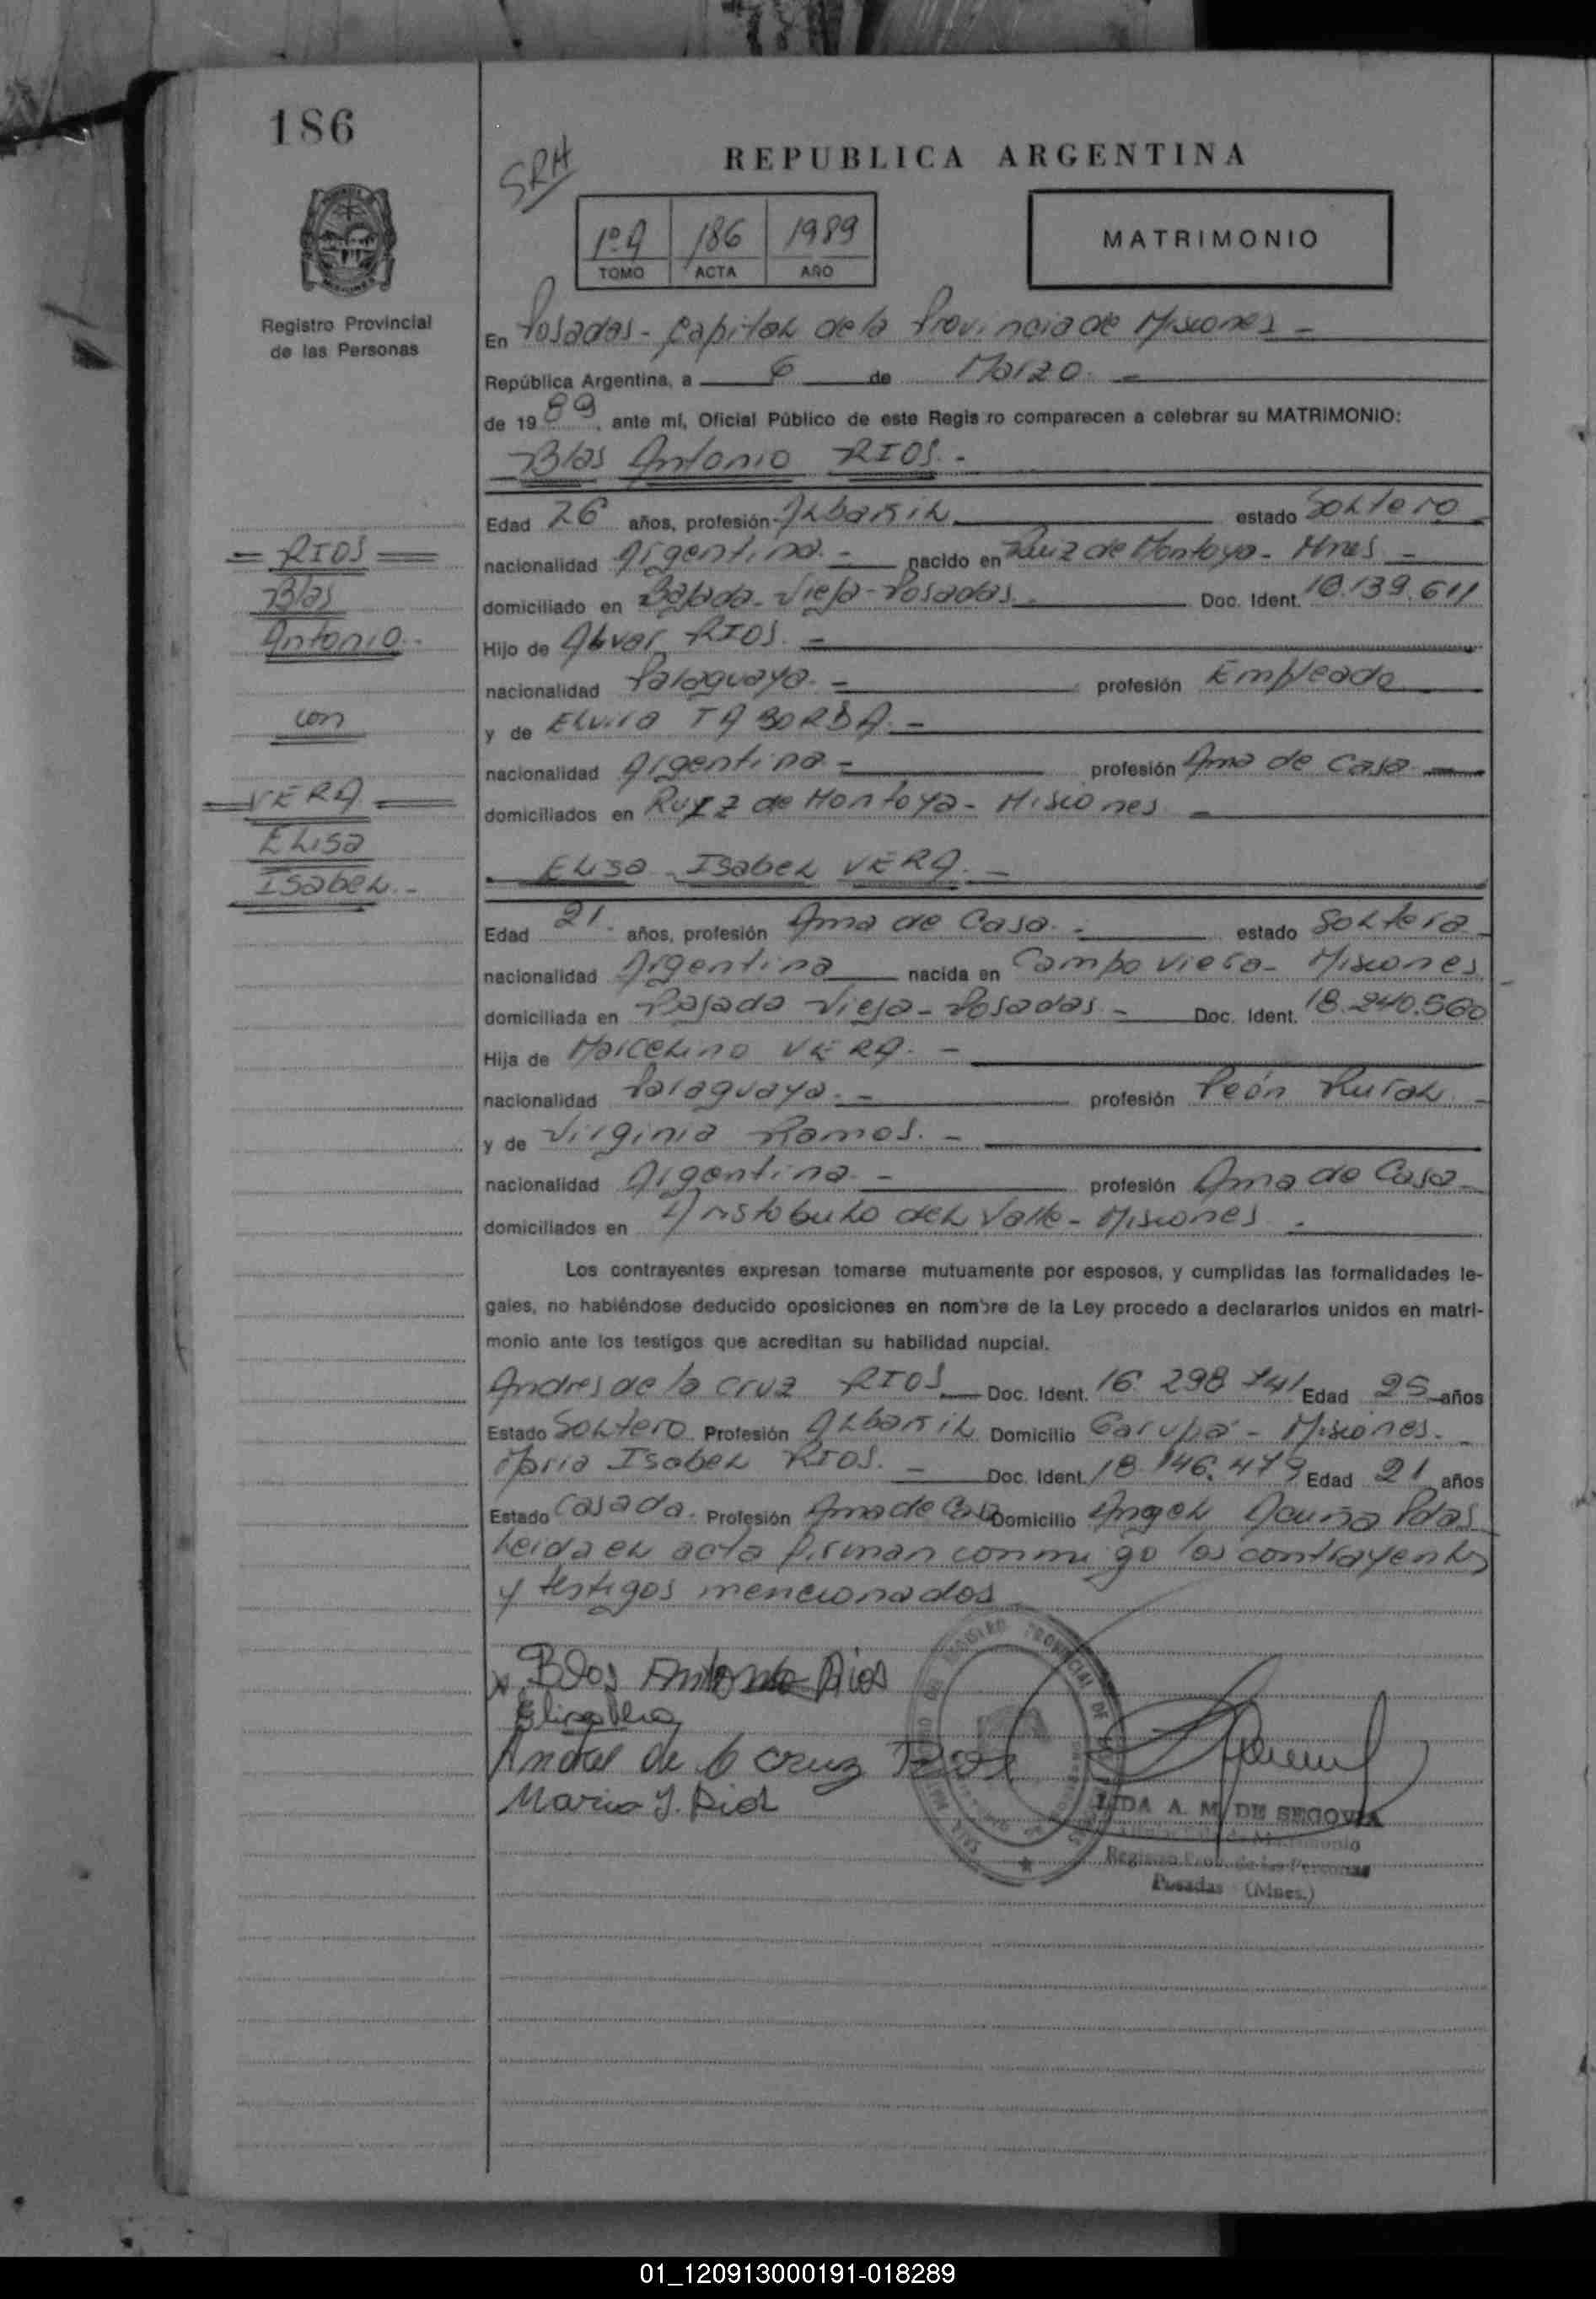 186
SRH
REPUBLICA ARGENTINA
1º A 186 1989
TOMO ACTA AÑO
MATRIMONIO
Registro Provincial
de las Personas
En Posadas - Capital de la Provincia de Misiones -
República Argentina, a 6 de Marzo. -
de 19 89, ante mí, Oficial Público de este Regis ro comparecen a celebrar su MATRIMONIO:
Blas Antonio RIOS. -
Edad 26 años, profesión Albañil estado Soltero
nacionalidad Argentina. - nacido en Ruiz de Montoya - Mnes -
domiciliado en Bajada Vieja - Posadas. Doc. Ident.
Hijo de Alvar RIOS. -
nacionalidad Paraguaya. - profesión Empleado
y de Elvira TABORDA. -
nacionalidad Argentina - profesión Ama de Casa -
domiciliados en Ruiz de Montoya - Misiones -
= RIOS =
Blas
Antonio. -
con
= VERA =
Elisa
Isabel. -
Elisa Isabel VERA. -
Edad 21. años, profesión Ama de Casa. - estado Soltera
nacionalidad Argentina nacida en Campo Viera - Misiones
domiciliada en Bajada Vieja - Posadas - Doc. Ident. 18.240.560
Hija de Marcelino VERA. -
nacionalidad Paraguaya. - profesión Peón Rural. -
y de Virginia Ramos. -
nacionalidad Argentina. - profesión Ama de Casa -
domiciliados en Aristobulo del Valle - Misiones -
Los contrayentes expresan tomarse mutuamente por esposos, y cumplidas las formalidades le-
gales, no habiéndose deducido oposiciones en nombre de la Ley procedo a declararlos unidos en matri-
monio ante los testigos que acreditan su habilidad nupcial.
Andres de la Cruz RIOS Doc. Ident. 16.298.741 Edad 25 años
Estado Soltero Profesión Albañil Domicilio Garupá - Misiones. -
Maria Isabel RIOS. - Doc. Ident. 18.146.479 Edad 21 años
Estado Casada. Profesión Ama de Casa Domicilio Angel Acuña Pdas
Leida el acta firman conmigo los contrayentes
y testigos mencionados
x Blas Antonio Rios
Elisa Vera
Andres de la cruz Rios
Maria I. Rios
LIDA A. M. DE SEGOVIA
Registro Prov. de las Personas
Posadas (Mnes.)
01_120913000191-018289